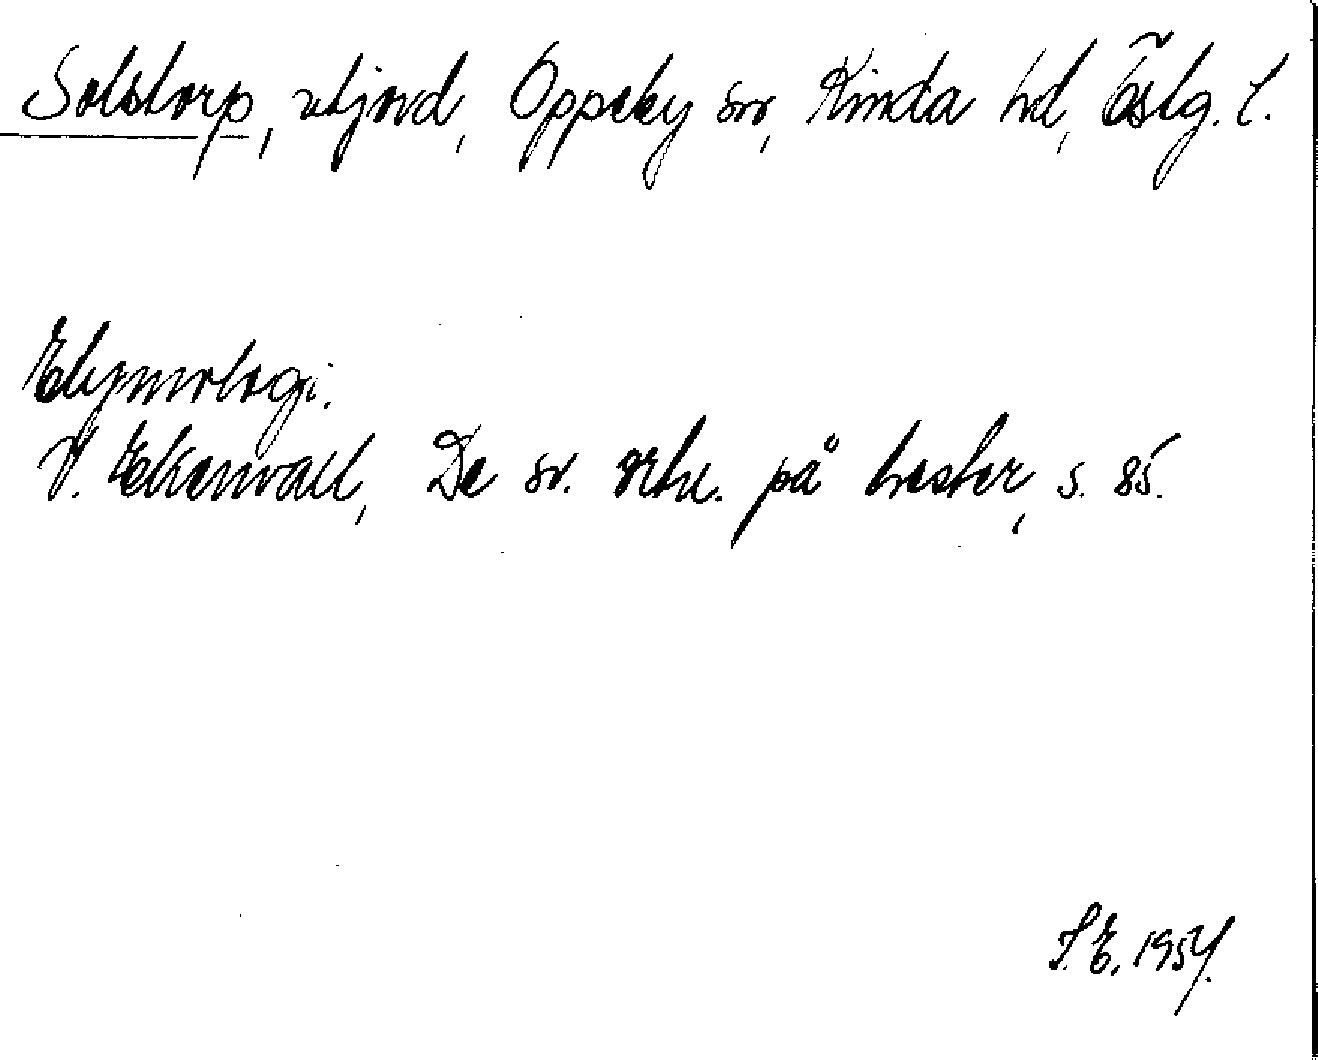 Solstorp, utjord, Oppeby sn, Kinda hd, Östg. l.
Etymologi.
V. Ekenvall, De sv. ortn. på hester, s. 85.
S. E. 1957.